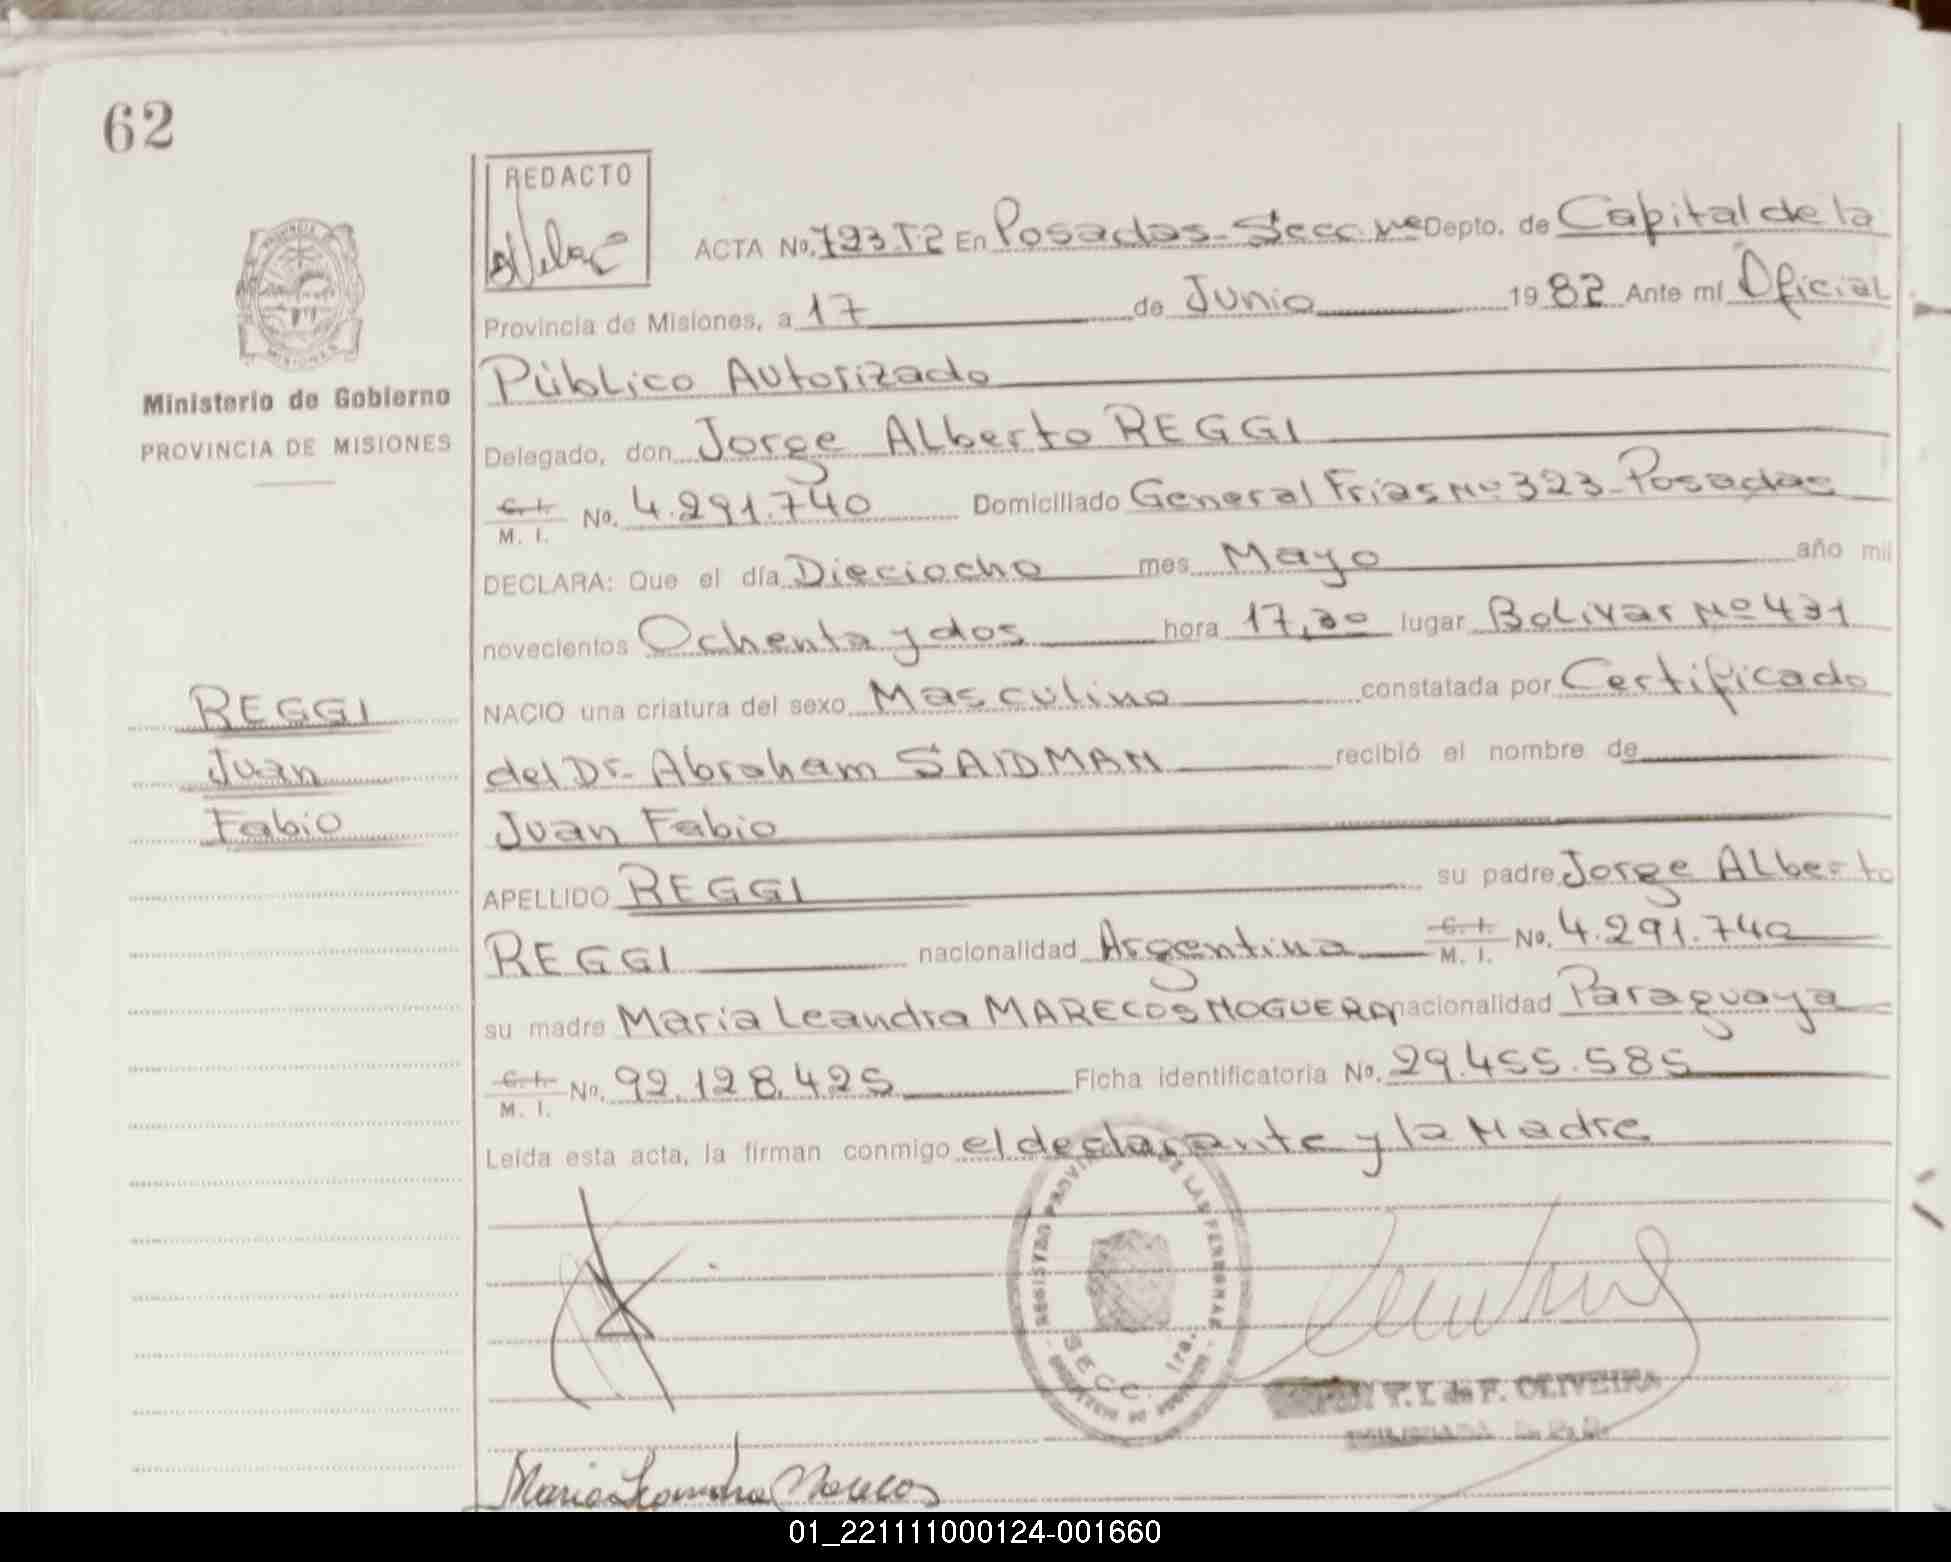 62
REDACTO
ACTA No. 793.T.2 En Posadas - Secc. 1ra Depto. de Capital de la
Provincia de Misiones, a 17 de Junio 1982 Ante mí Oficial
Público Autorizado
Delegado, don Jorge Alberto REGGI
C. I. M. I. No. 4.291.740 Domiciliado General Frías Nº 323 - Posadas
DECLARA: Que el día Dieciocho mes Mayo año mil
novecientos Ochenta y dos hora 17,30 lugar Bolivar Nº 431
NACIO una criatura del sexo Masculino constatada por Certificado
del Dr. Abraham SAIDMAN recibió el nombre de
Juan Fabio
APELLIDO REGGI su padre Jorge Alberto
REGGI nacionalidad Argentina C. I. M. I. No. 4.291.740
su madre María Leandra MARECOS NOGUERA nacionalidad Paraguaya
C. I. M. I. No. 92.128.425 Ficha identificatoria No. 29.455.585
Leída esta acta, la firman conmigo el declarante y la Madre
Ministerio de Gobierno
PROVINCIA DE MISIONES
REGGI
Juan
Fabio
MISIONES
REGISTRO PROVINCIAL DE LAS PERSONAS
SECC. 1ra.
P. I. de F. OLIVEIRA
Maria Leandra Marecos
01_221111000124-001660